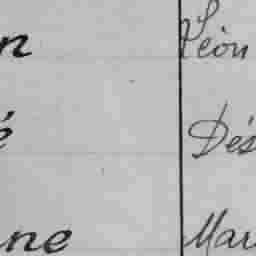 n Léon
é Dés
ne Mar